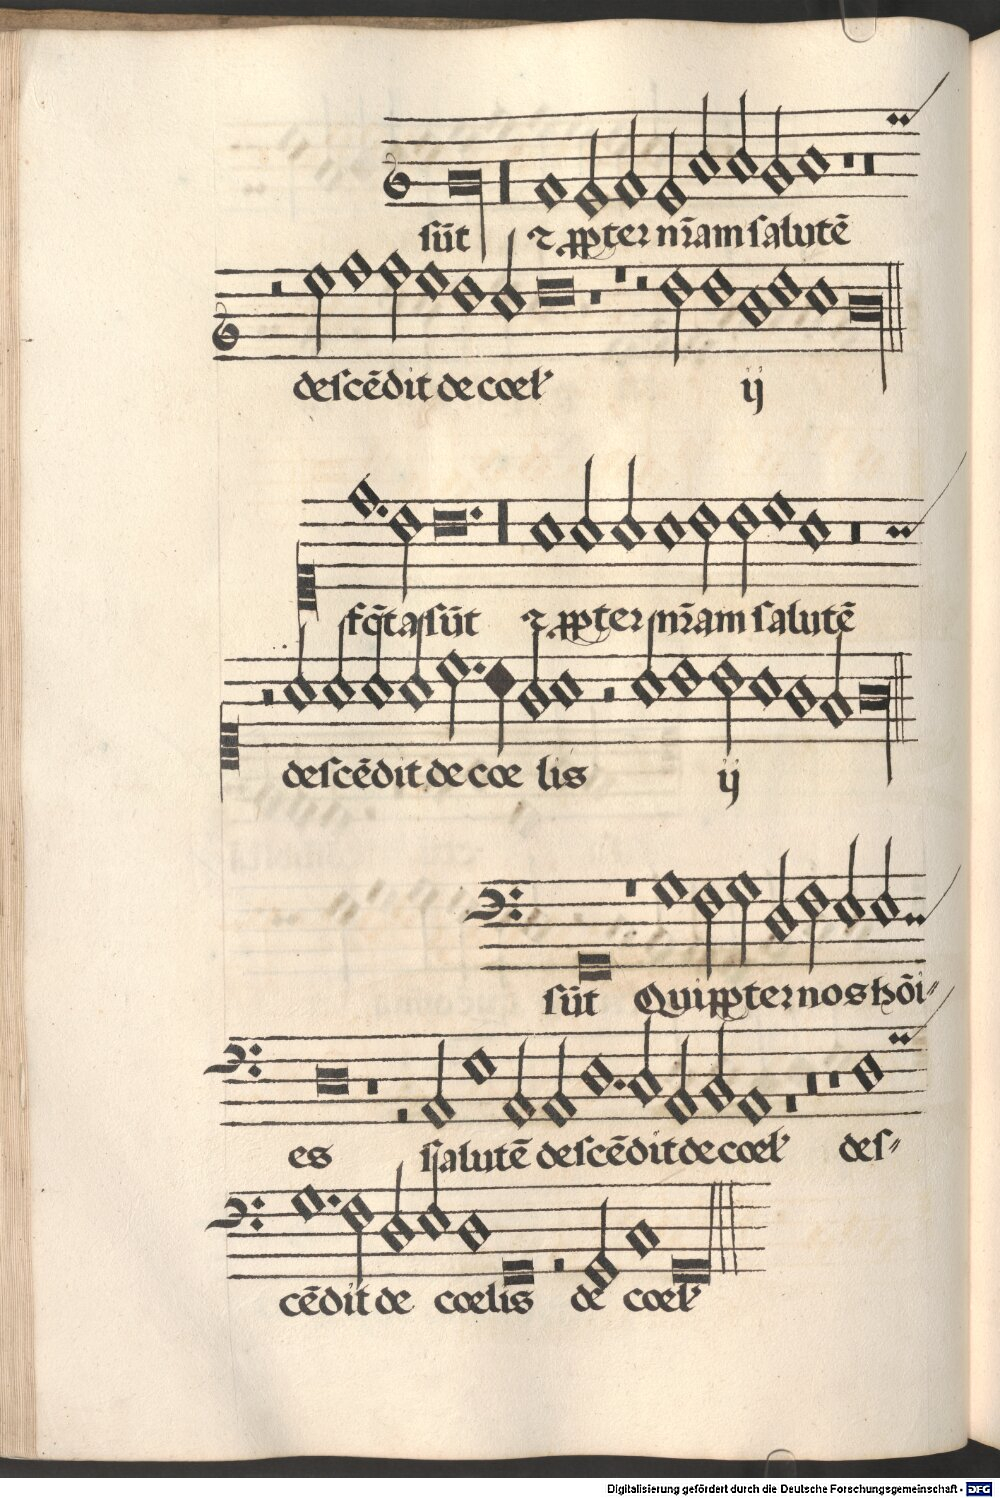 sūt ⁊ ꝓpter nr̄am salutē
descēdit de coelꝭ ij
fc̄ta sūt ⁊ ꝓpter nr̄am salutē
descēdit de coe lis ij
sūt Qui ꝓpter nos hōi⸗
es salutē descēdit de coelꝭ des⸗
cēdit de coelis de coelꝭ
Digitalisierung gefördert durch die Deutsche Forschungsgemeinschaft - DFG